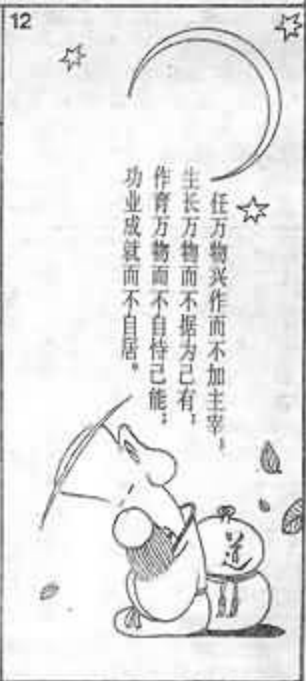 12
任万物兴作而不加主宰，
生长万物而不据为己有；
作育万物而不自恃己能；
功业成就而不自居。
道